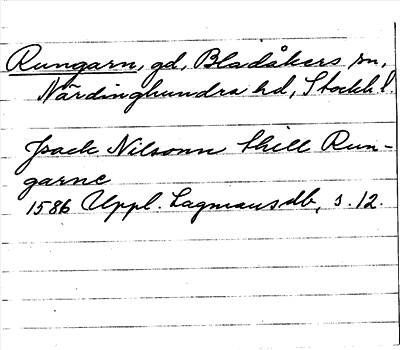 Rungarn, gd, Bladåkers sn,
Närdinghundra hd, Stockh. l.
Jsack Nilsonn thill Run-
garne
1586 Uppl. Lagmansdb, s. 12.